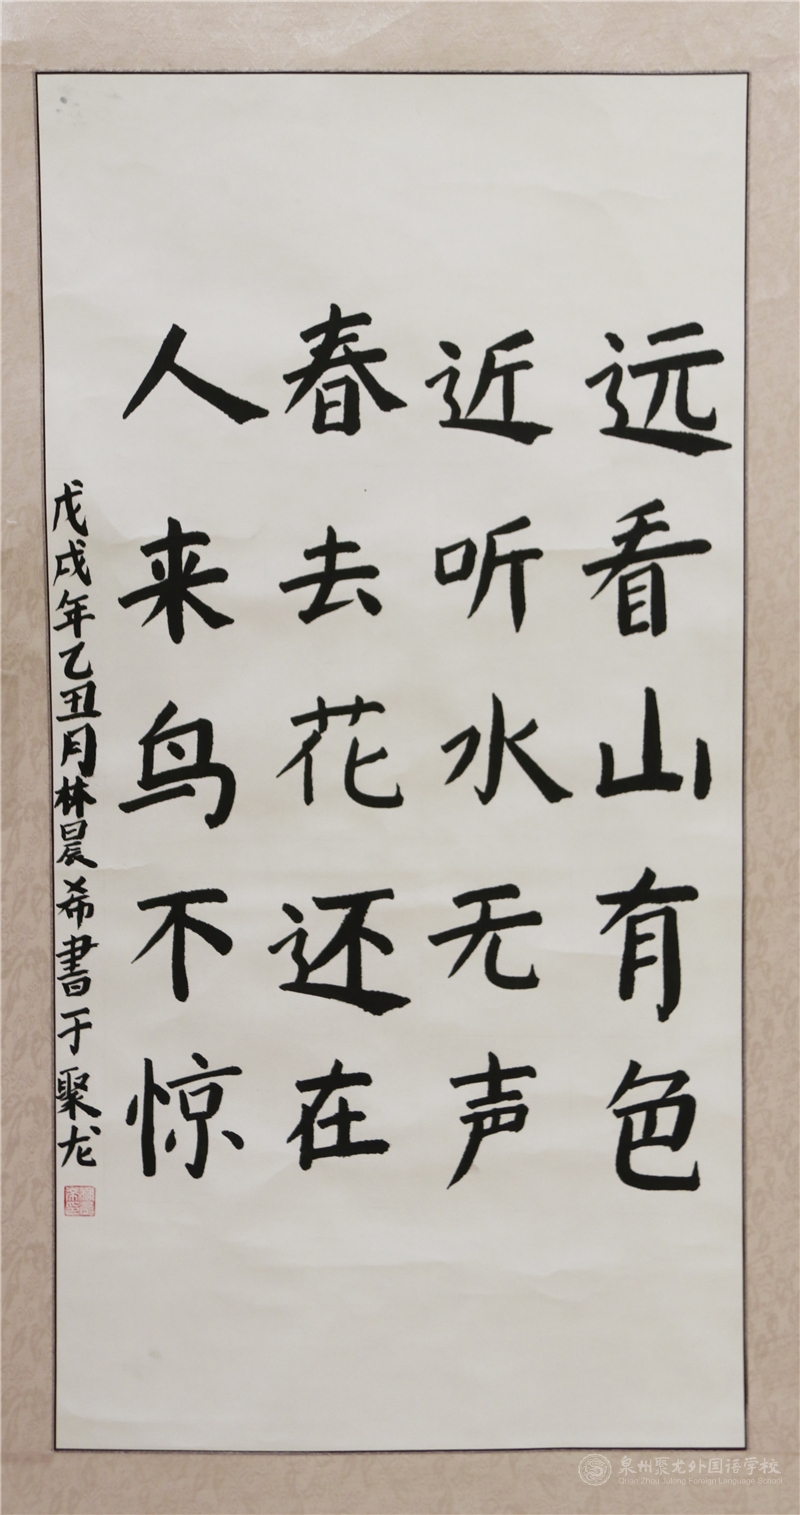 远看山有色
近听水无声
春去花还在
人来鸟不惊
戊戌年乙丑月林晨希書于聚龙
泉州聚龙外国语学校
Quan Zhou Julong Foreign Language School